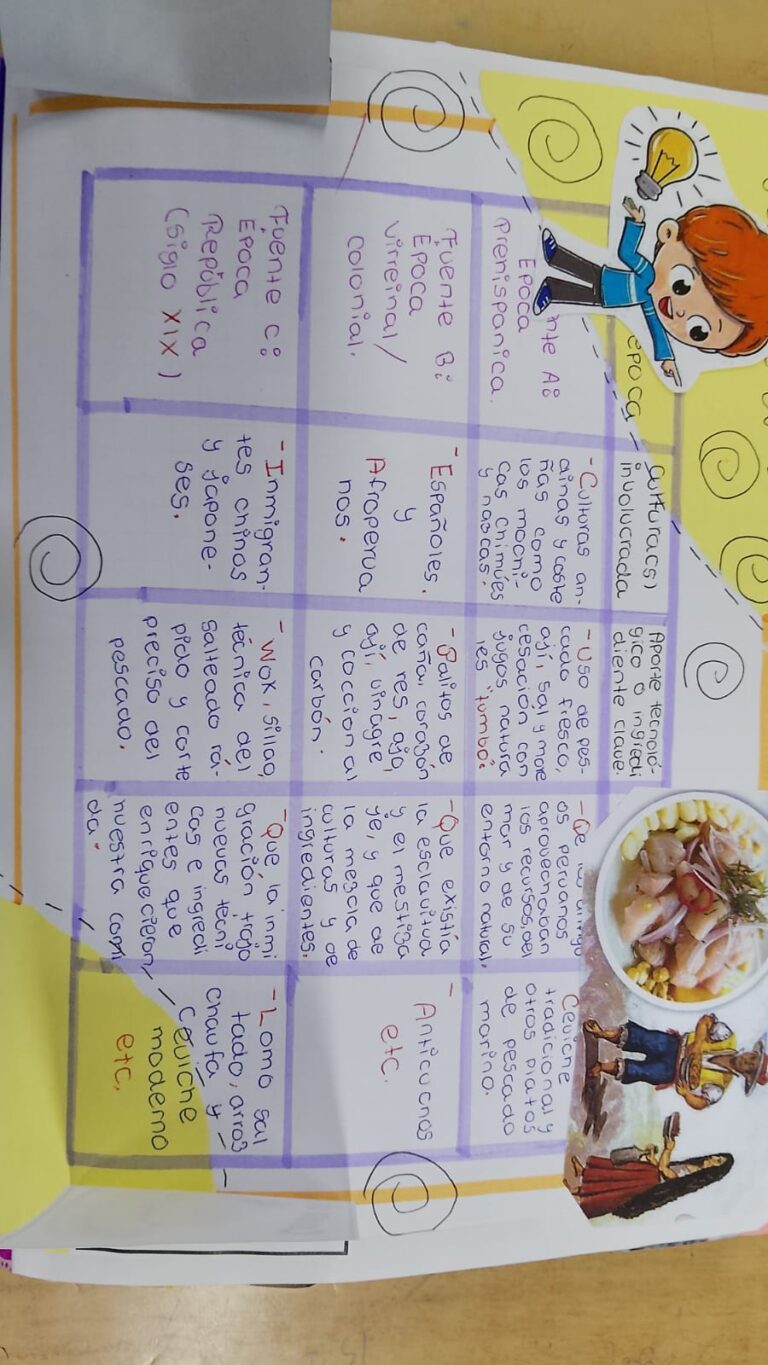 época
Cultura(s)
involucrada
Aporte tecnoló-
gico o ingredi
diente clave.
nte A:
Época
Prehispánica.
-Culturas an-
dinas y coste
ñas como
los mochi-
cas Chimúes
y nascas.
-Uso de pes-
cado fresco,
ají, sal y mare
cesación con
jugos natura
les "tumbo:
-De
os peruanos
aprovechaban
los recursos, del
mar y de su
entorno natural,
Ceviche
tradicional y
otros platos
de pescado
marino.
Fuente B:
Época
Virreinal/
colonial.
-Españoles.
y
Afroperua
nos.
-Palitos de
caña, corazón
de res, ajo,
ají, vinagre
y cocción al
carbón.
-Que existía
la esclavitud
y el mestiza
je, y que de
la mezcla de
culturas y de
ingredientes.
-Anticuchos
etc.
Fuente C:
Época
República
(siglo XIX)
-Inmigran-
tes chinos
y japone-
ses.
-Wok, sillao,
técnica del
salteado rá-
pido y corte
preciso del
pescado.
-Que la inmi
gración trajo
nuevas técni
cas e ingredi
entes que
enriquecieron
nuestra comi
da.
-Lomo sal
tado, arroz
chaufa y
ceviche
moderno
etc.